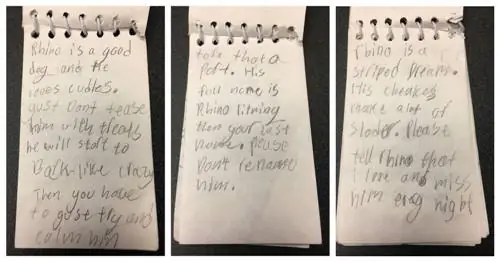 Rhino is a good
dog and He
loves cudles.
gust Dont tease
him with treats
he will start to
Bark like crazy
Then you have
to gust try and
calm him
take that a
Part. His
full name is
Rhino litning
then your last
name. Please
Dont rename
him.
Rhino is a
striped Dream.
His cheakes
make alot of
slober. Please
tell rhino that
I love and miss
him evry night